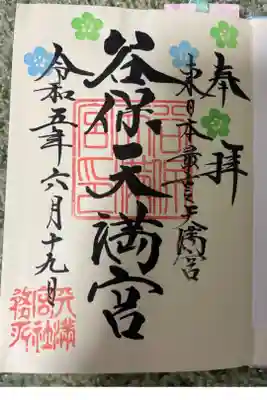 奉拝
東日本最古天満宮
谷保天満宮
令和五年六月十九日
天満
宮社
務所